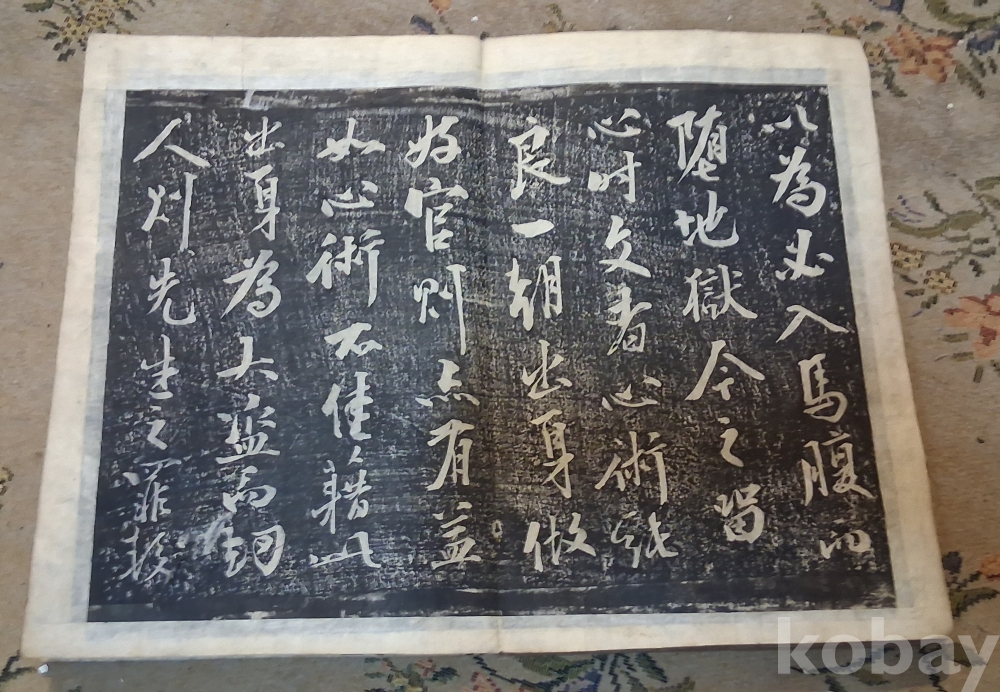 以為必入馬腹而
堕地獄今之留
心时文者心術純
良一朝出身做
好官則亦有益
如心術不佳藉此
出身為大盜而
人則先生之罪
kobay